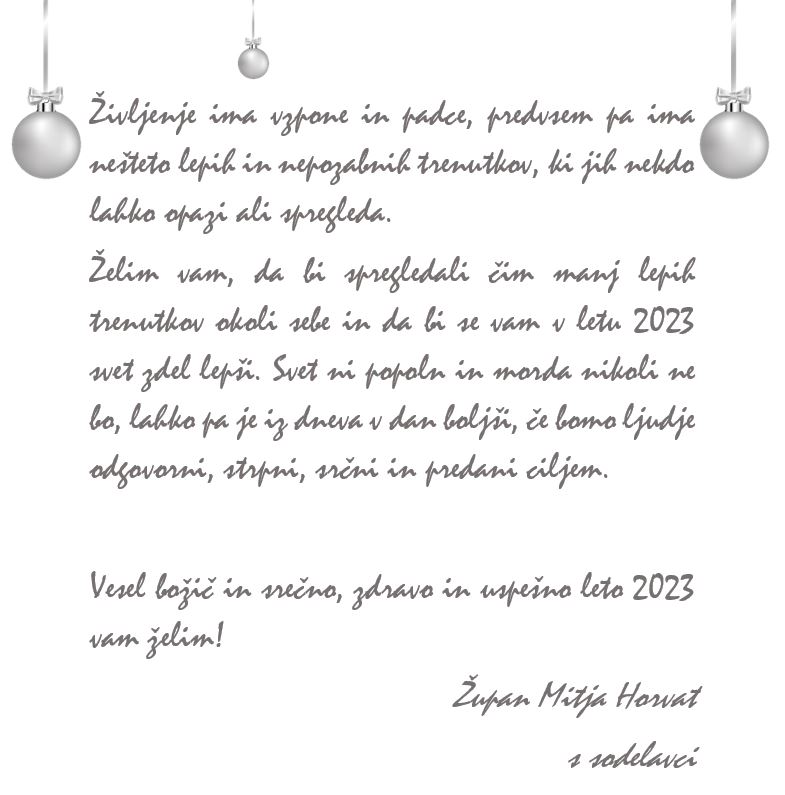 Življenje ima vzpone in padce, predvsem pa ima
nešteto lepih in nepozabnih trenutkov, ki jih nekdo
lahko opazi ali spregleda.
Želim vam, da bi spregledali čim manj lepih
trenutkov okoli sebe in da bi se vam v letu 2023
svet zdel lepši. Svet ni popoln in morda nikoli ne
bo, lahko pa je iz dneva v dan boljši, če bomo ljudje
odgovorni, strpni, srčni in predani ciljem.
Vesel božič in srečno, zdravo in uspešno leto 2023
vam želim!
Župan Mitja Horvat
s sodelavci